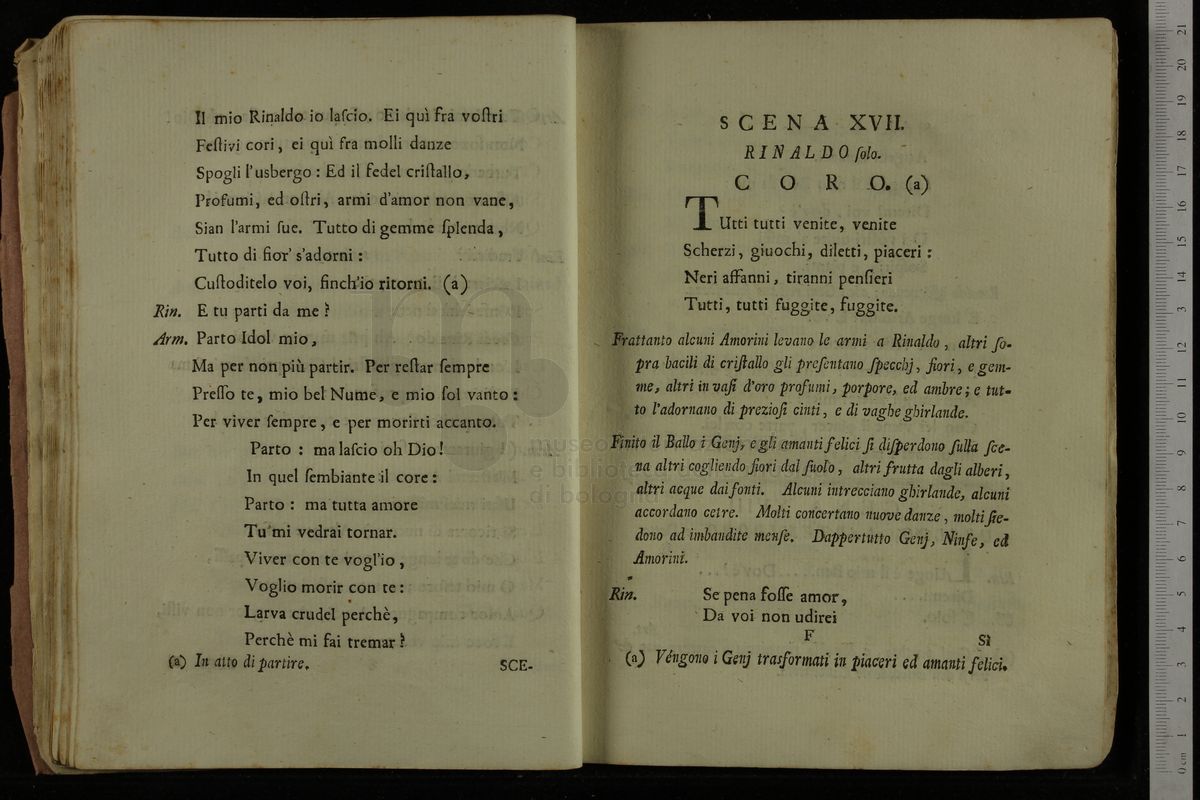 Il mio Rinaldo io laſcio. Ei quì fra voſtri
Feſtivi cori, ei quì fra molli danze
Spogli l'usbergo : Ed il fedel criſtallo,
Profumi, ed oſtri, armi d'amor non vane,
Sian l'armi ſue. Tutto di gemme ſplenda,
Tutto di fior' s'adorni :
Cuſtoditelo voi, finch'io ritorni. (a)
Rin. E tu parti da me ?
Arm. Parto Idol mio,
Ma per non più partir. Per reſtar ſempre
Preſſo te, mio bel Nume, e mio ſol vanto :
Per viver ſempre, e per morirti accanto.
Parto : ma laſcio oh Dio !
In quel ſembiante il core :
Parto : ma tutta amore
Tu mi vedrai tornar.
Viver con te vogl'io,
Voglio morir con te :
Larva crudel perchè,
Perchè mi fai tremar ?
(a) In atto di partire.
SCE-
SCENA XVII.
RINALDO ſolo.
CORO. (a)
TUtti tutti venite, venite
Scherzi, giuochi, diletti, piaceri :
Neri affanni, tiranni penſieri
Tutti, tutti fuggite, fuggite.
Frattanto alcuni Amorini levano le armi a Rinaldo, altri ſo-
pra bacili di criſtallo gli preſentano ſpecchj, fiori, e gem-
me, altri in vaſi d'oro profumi, porpore, ed ambre; e tut-
to l'adornano di prezioſi cinti, e di vaghe ghirlande.
Finito il Ballo i Genj, e gli amanti felici ſi diſperdono ſulla ſce-
na altri cogliendo fiori dal ſuolo, altri frutta dagli alberi,
altri acque dai fonti. Alcuni intrecciano ghirlande, alcuni
accordano cetre. Molti concertano nuove danze, molti ſie-
dono ad imbandite menſe. Dappertutto Genj, Ninfe, ed
Amorini.
Rin. Se pena foſſe amor,
Da voi non udirei
F
Sì
(a) Vengono i Genj trasformati in piaceri ed amanti felici.